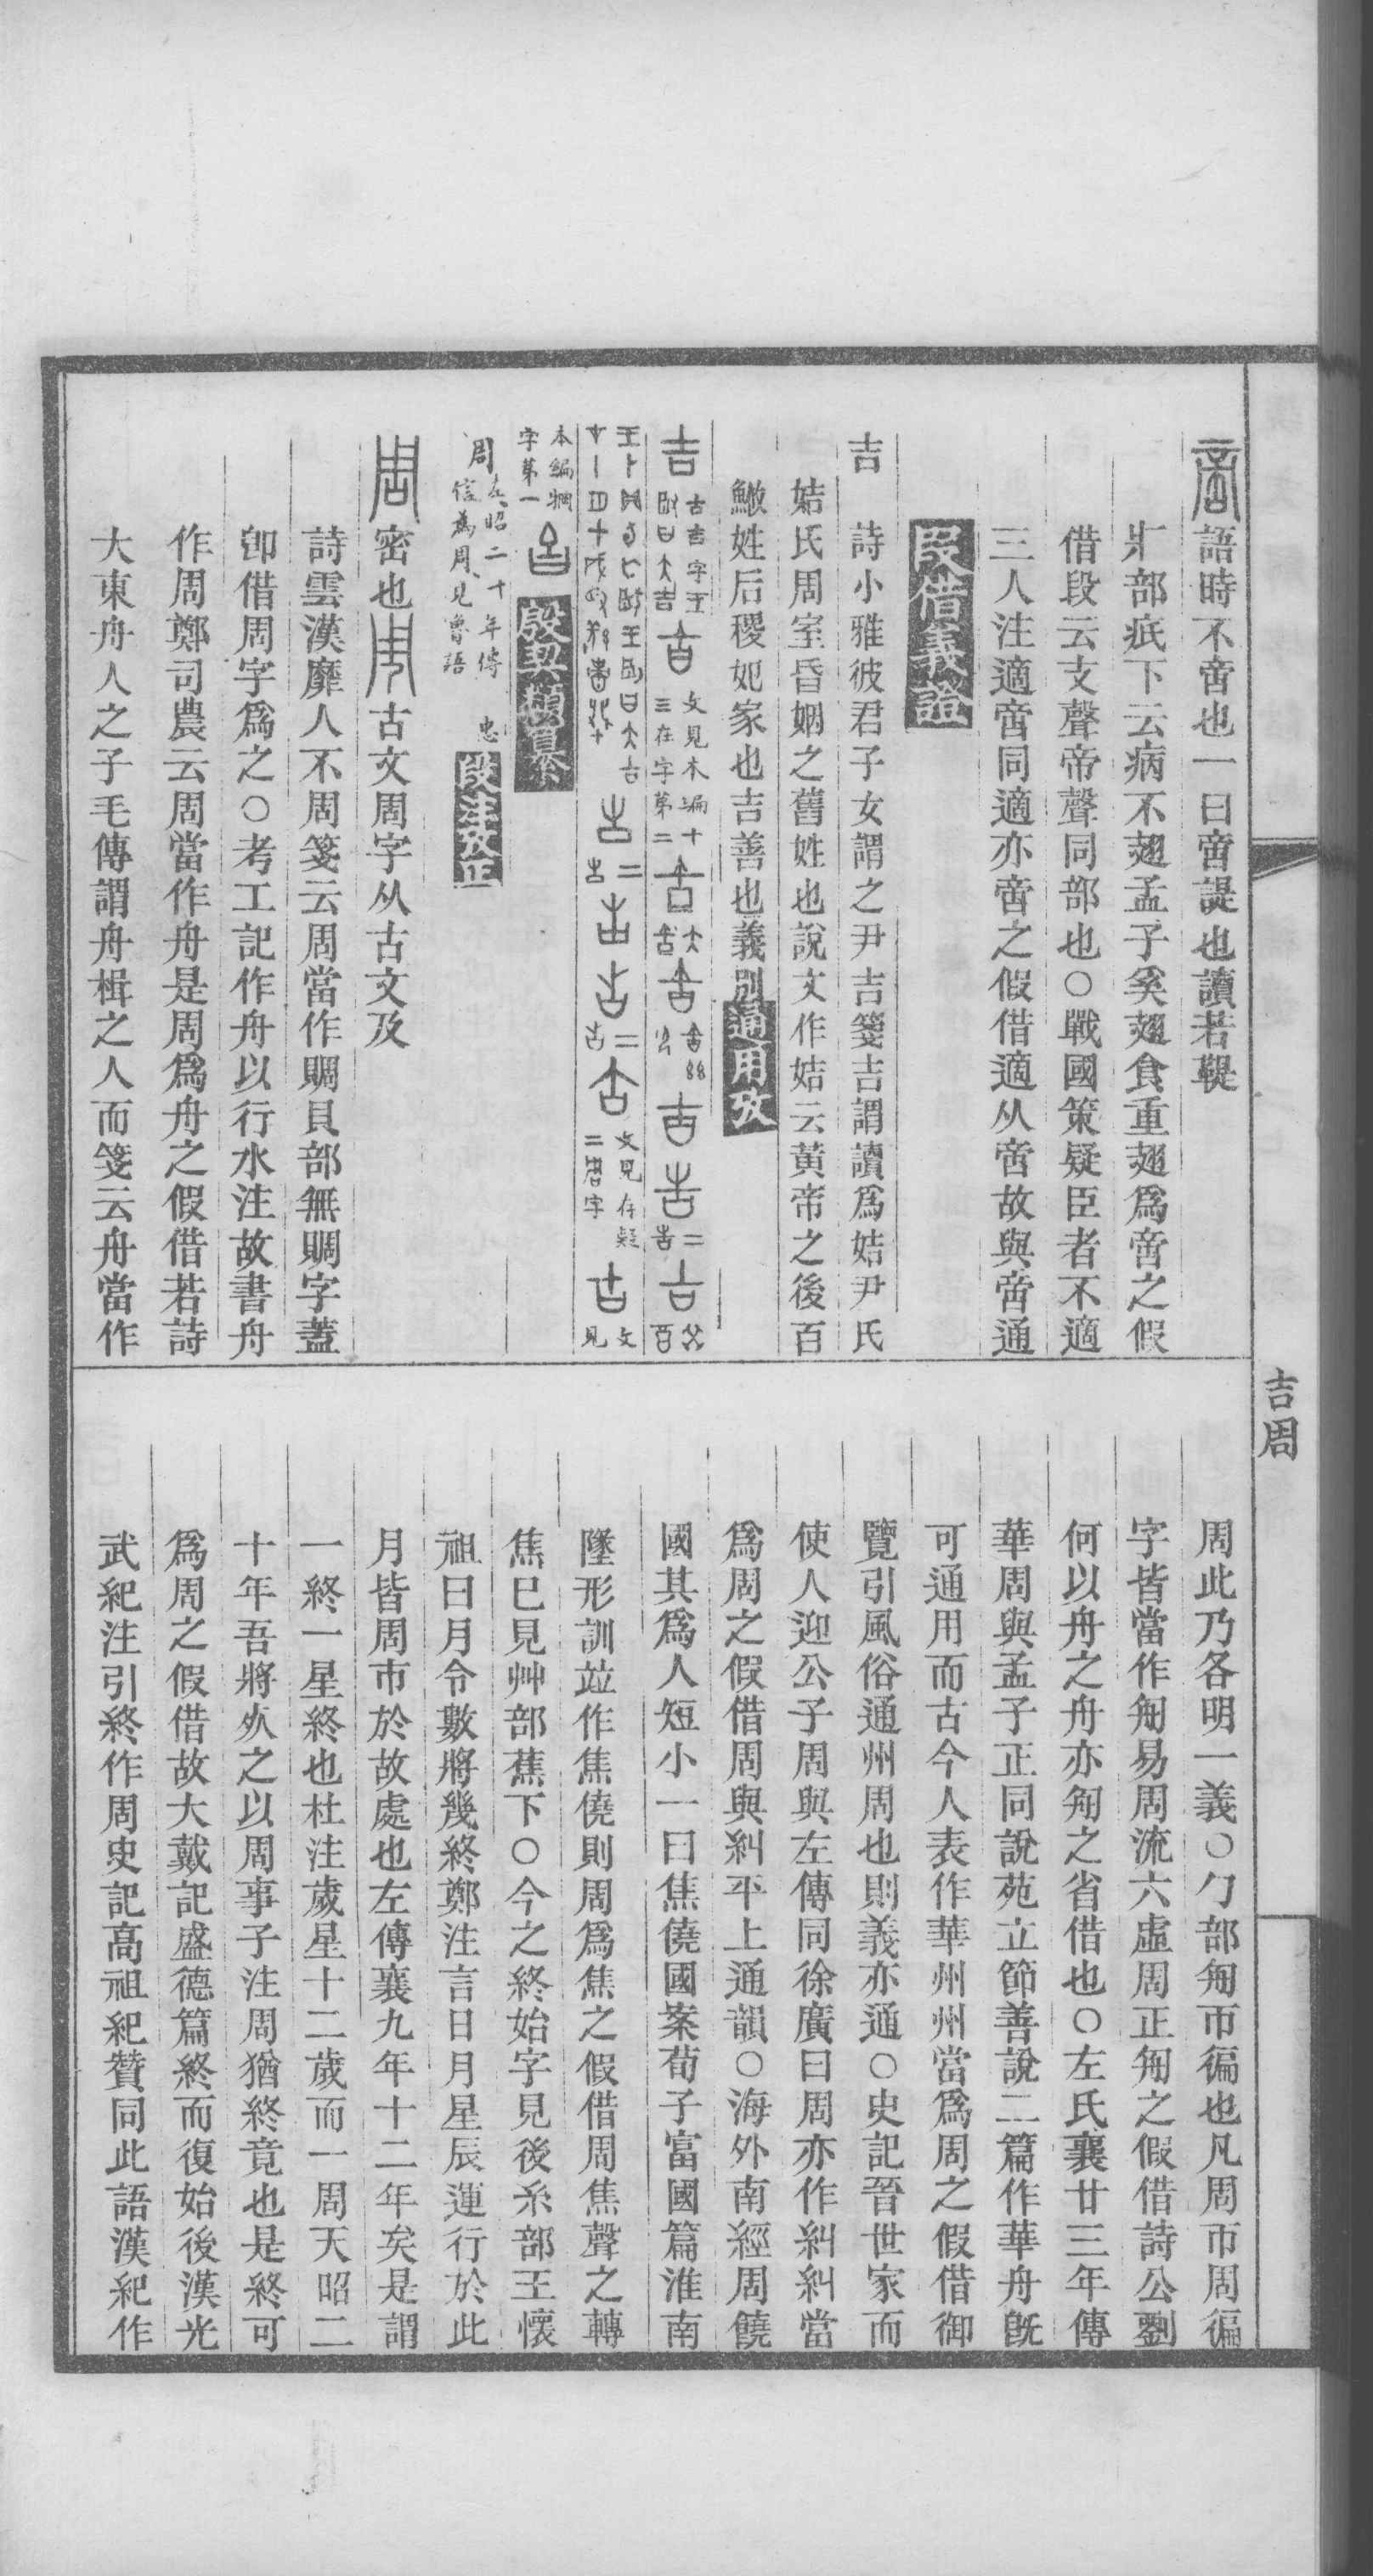 語時不啻也一曰啻諟也讀若鞮
疒部疧下云病不翅孟子奚翅食重翅爲啻之假
借段云支聲帝聲同部也○戰國策疑臣者不適
三人注適啻同適亦啻之假借適从啻故與啻通
段借義證
吉　詩小雅彼君子女謂之尹吉箋吉謂讀爲姞尹氏
姞氏周室昏姻之舊姓也說文作姞云黃帝之後百
鮅姓后稷妃家也吉善也義別通用攷
古吉字王　文見本編十三在字第二
文見存疑二　文見
本編　字第一　殷契類纂
周　左昭二十年傳　忠信爲周見魯語　段注攷正
密也　古文周字从古文及
詩雲漢靡人不周箋云周當作賙貝部無賙字蓋
卽借周字爲之○考工記作舟以行水注故書舟
作周鄭司農云周當作舟是周爲舟之假借若詩
大東舟人之子毛傳謂舟楫之人而箋云舟當作
吉周
周此乃各明一義○勹部匊帀徧也凡周帀周徧
字皆當作匊易周流六虛周正匊之假借詩公劉
何以舟之舟亦匊之省借也○左氏襄廿三年傳
華周與孟子正同說苑立節善說二篇作華舟旣
可通用而古今人表作華州州當爲周之假借御
覽引風俗通州周也則義亦通○史記晉世家而
使人迎公子周與左傳同徐廣曰周亦作糾糾當
爲周之假借周與糾平上通韻○海外南經周饒
國其爲人短小一曰焦僥國案荀子富國篇淮南
墬形訓竝作焦僥則周爲焦之假借周焦聲之轉
焦巳見艸部蕉下○今之終始字見後糸部王懷
祖曰月令數將幾終鄭注言日月星辰運行於此
月皆周帀於故處也左傳襄九年十二年矣是謂
一終一星終也杜注歲星十二歲而一周天昭二
十年吾將死之以周事子注周猶終竟也是終可
爲周之假借故大戴記盛德篇終而復始後漢光
武紀注引終作周史記高祖紀贊同此語漢紀作